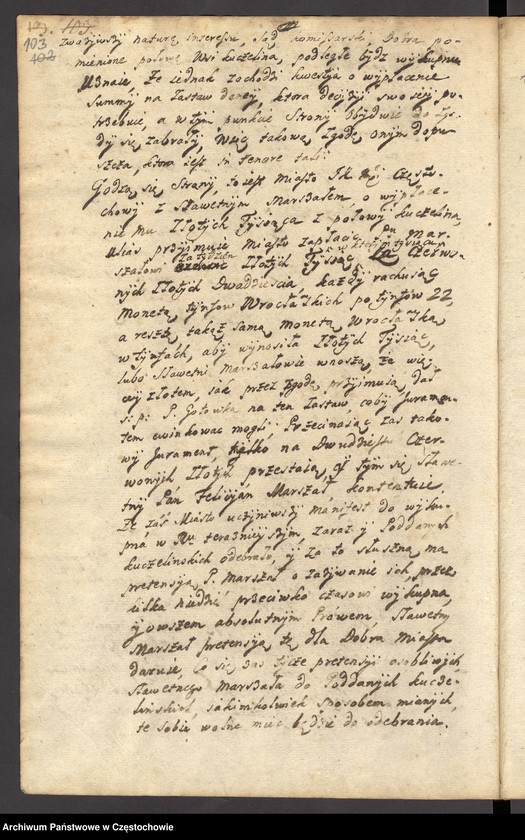 103
zwarzywszy naturę interessu, Sąd komissarski Dobra po-
mienione połowę Wsi kuczelina, podległe bydz wykupnu
Uznaie. Ze iednak zachodzi kwestya o wypłacenie
Summy na Zastaw daney, ktora decyzyi swoiey po-
trzebuie, a w tym punkcie Strony obydwie do zgo-
dy się zabrały, Więc takową zgodę onym dopu-
szcza, ktora iest in tenore tali
Godzą się Strony, to iest Miasto Często-
chowy z Sławetnym Marszałem, o wypłace-
nie mu Złotych Tysiąca z połowy kuczelina,
Miasto zapłacic Pu Mar-
szałowi za tydzien Złotych Tysiąc, w ktorym tysiącu Czerwo-
nych Złotych Dwadziescia, każdy rachuiąc
Monetą tynfow Wrocławskich po tynfów 22,
a resztę takąż samą monetą Wrocławską
w tynfach, aby wynosiła Złotych Tysiąc,
lubo Sławetni Marszałowie wnoszą, że wię-
cey złotem, iak przez zgodę przyimuią, dał
s: p: P. Gotowka na ten Zastaw, coby Juramen-
tem ewinkowac mogli, Przecinaiąc zas tako-
wy Jurament, tylko na Dwudziestu Czer-
wonych Złotych przestaią, y tym się Sławe-
tny Pan Felicyan Marszał, kontentuie.
Ze zas Miasto uczyniwszy manifest do wyku-
pna w Ru teraznieyszym, zaraz y Poddanych
kuczelinskich odebrało, y za to słuszną ma
pretensyą P. Marszał o zażywanie ich przez
kilka niedziel przeciwko czasowi wykupna,
y owszem absolutnym Prawem, Sławetny
Marszał pretensyą tę dla Dobra Miasta
daruie, Co się zas tycze pretensyi osobliwych
Sławetnego Marszała do Poddanych kucze-
linskich iakimkolwiek sposobem mianych,
te sobie wolne miec będzie do odebrania.
Archiwum Państwowe w Częstochowie